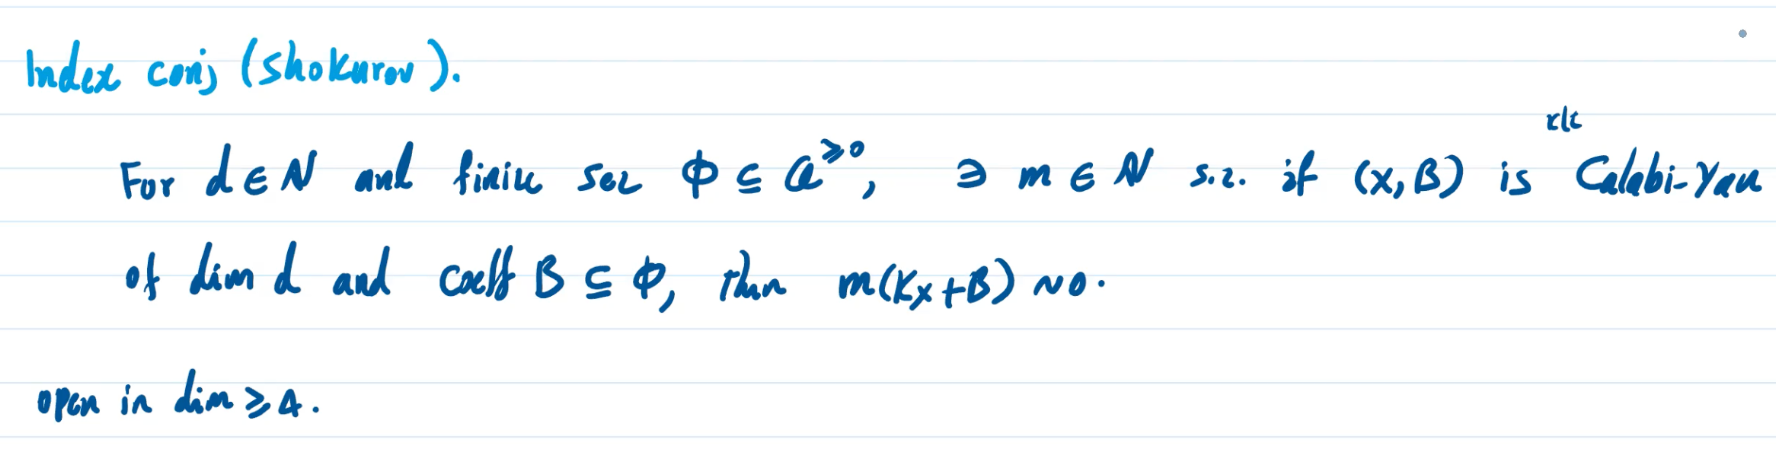 Index conj (Shokurov).
klt
For d ∈ ℕ and finite set Φ ⊆ ℚ^{≥0}, ∃ m ∈ ℕ s.t. if (X, B) is Calabi-Yau
of dim d and coeff B ⊆ Φ, then m(K_X+B) ~ 0.
open in dim ≥ 4.